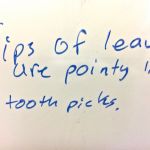 Tips of leav
are pointy li
tooth picks.